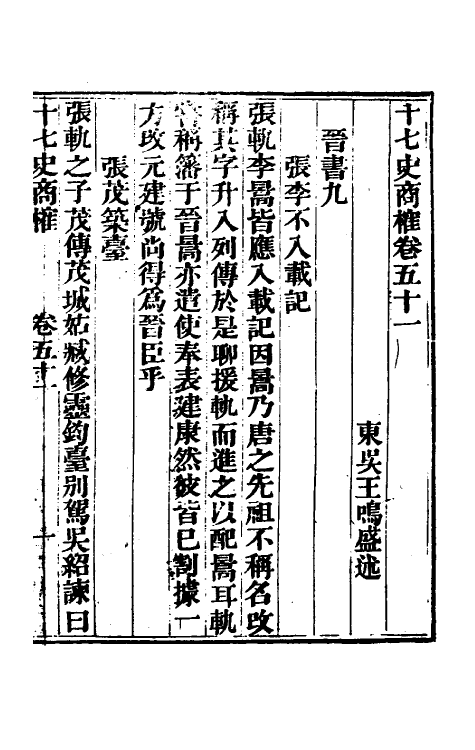 十七史商榷卷五十一
東吳王鳴盛述
晉書九
張李不入載記
張軌李暠皆應入載記因暠乃唐之先祖不稱名攺
稱其字升入列傳於是聊援軌而進之以配暠耳軌
稱藩于晉暠亦遣使奉表建康然彼皆已割據一
方攺元建號尚得爲晉臣乎
張茂築臺
張軌之子茂傳茂城姑臧修靈鈞臺别駕吳紹諫曰
十七史商榷 卷五十一 一